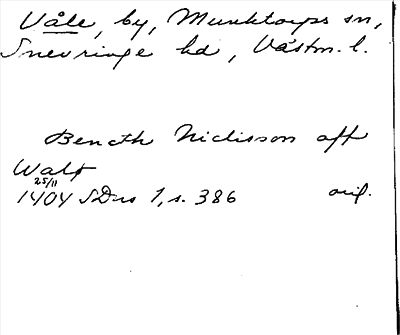 Våle, by, Munktorps sn,
Snevringe hd, Västm. l.
Bencth Niclisson aff
Walø
25/11
1404 SDns 1, s. 386 orig.